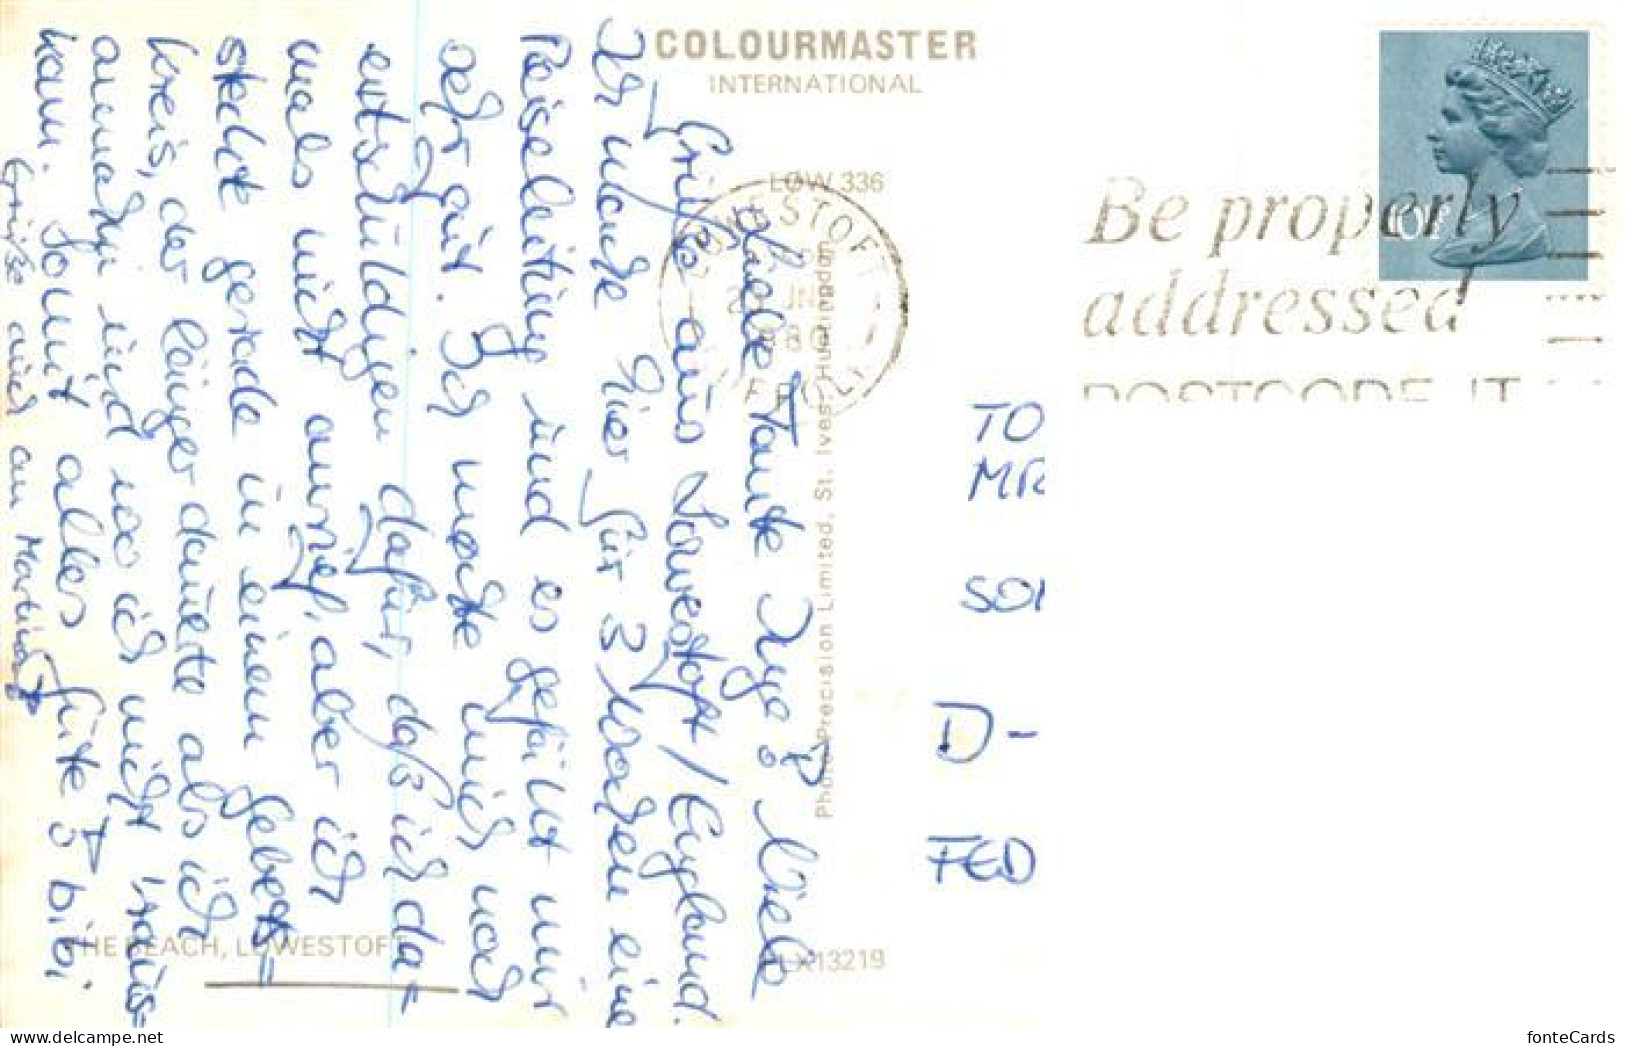 COLOURMASTER
INTERNATIONAL
LOW 336
LOWESTOFT
JN
80
SUFFOLK
Be properly
addressed
POSTCODE IT
10P
Liebe Tante Inge! Viele
Grüße aus Lowestoft / England.
Ich mache hier für 3 Wochen eine
Reiseleitung und es gefällt mir
sehr gut. Ich möchte mich noch
entschuldigen dafür, daß ich da=
mals nicht anrief, aber ich
steckte gerade in einem Gebets=
kreis, der länger dauerte als ich
annahm und wo ich nicht raus=
kam. Somit alles Gute & bibi
Grüße auch an Martina
Photo Precision Limited, St. Ives, Huntingdon
THE BEACH, LOWESTOFT
PLX13219
TO
MR
SO
D-
FED
fonteCards
delcampe.net